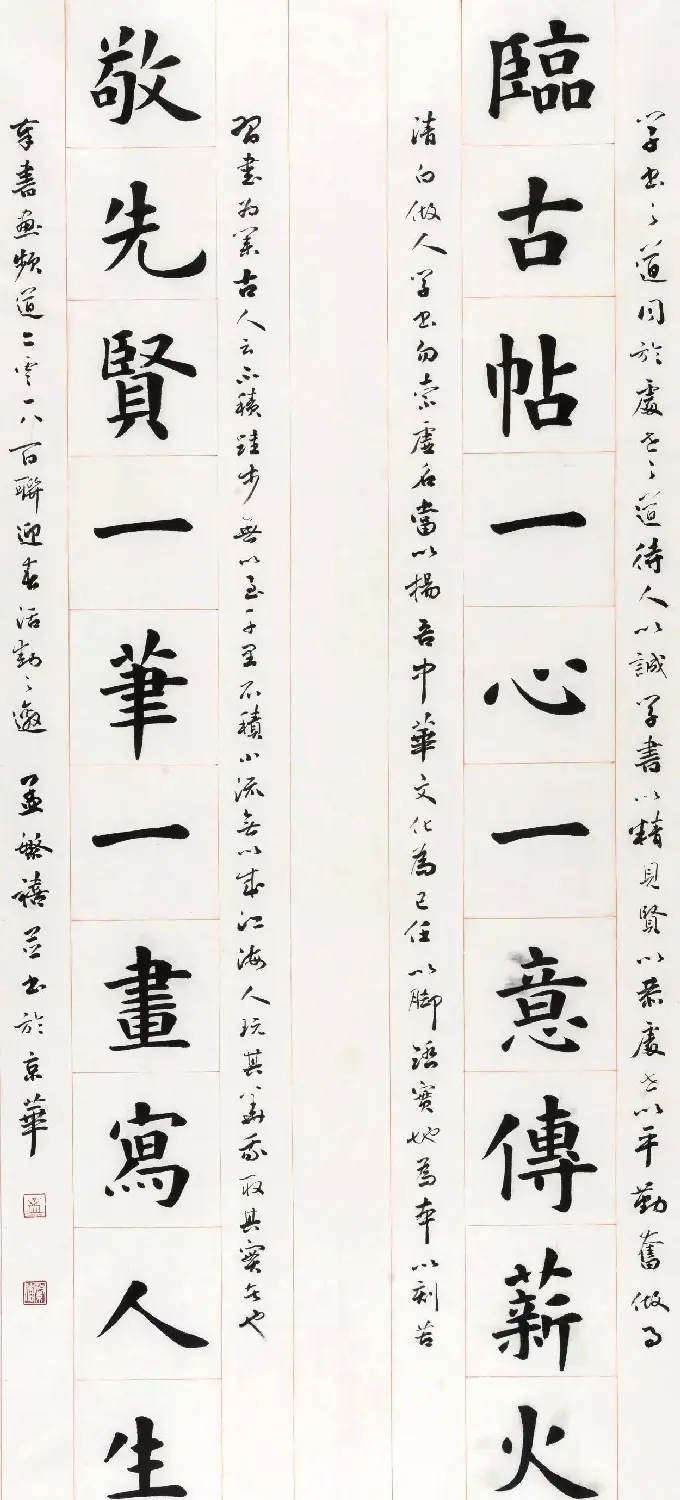 学书之道同於處世之道待人以誠学書以精見賢以恭處世以平勤奮做事
臨古帖一心一意傳薪火
清白做人学书勿索虚名當以揚吾中華文化為己任以脚踏實地為本以刻苦
習書为業古人云不積跬步無以至千里不積小流無以成江海人玩其華我取其實者也
敬先賢一筆一畫寫人生
奉書画频道二零一八百聯迎春活動之邀 孟繁禧并书於京華